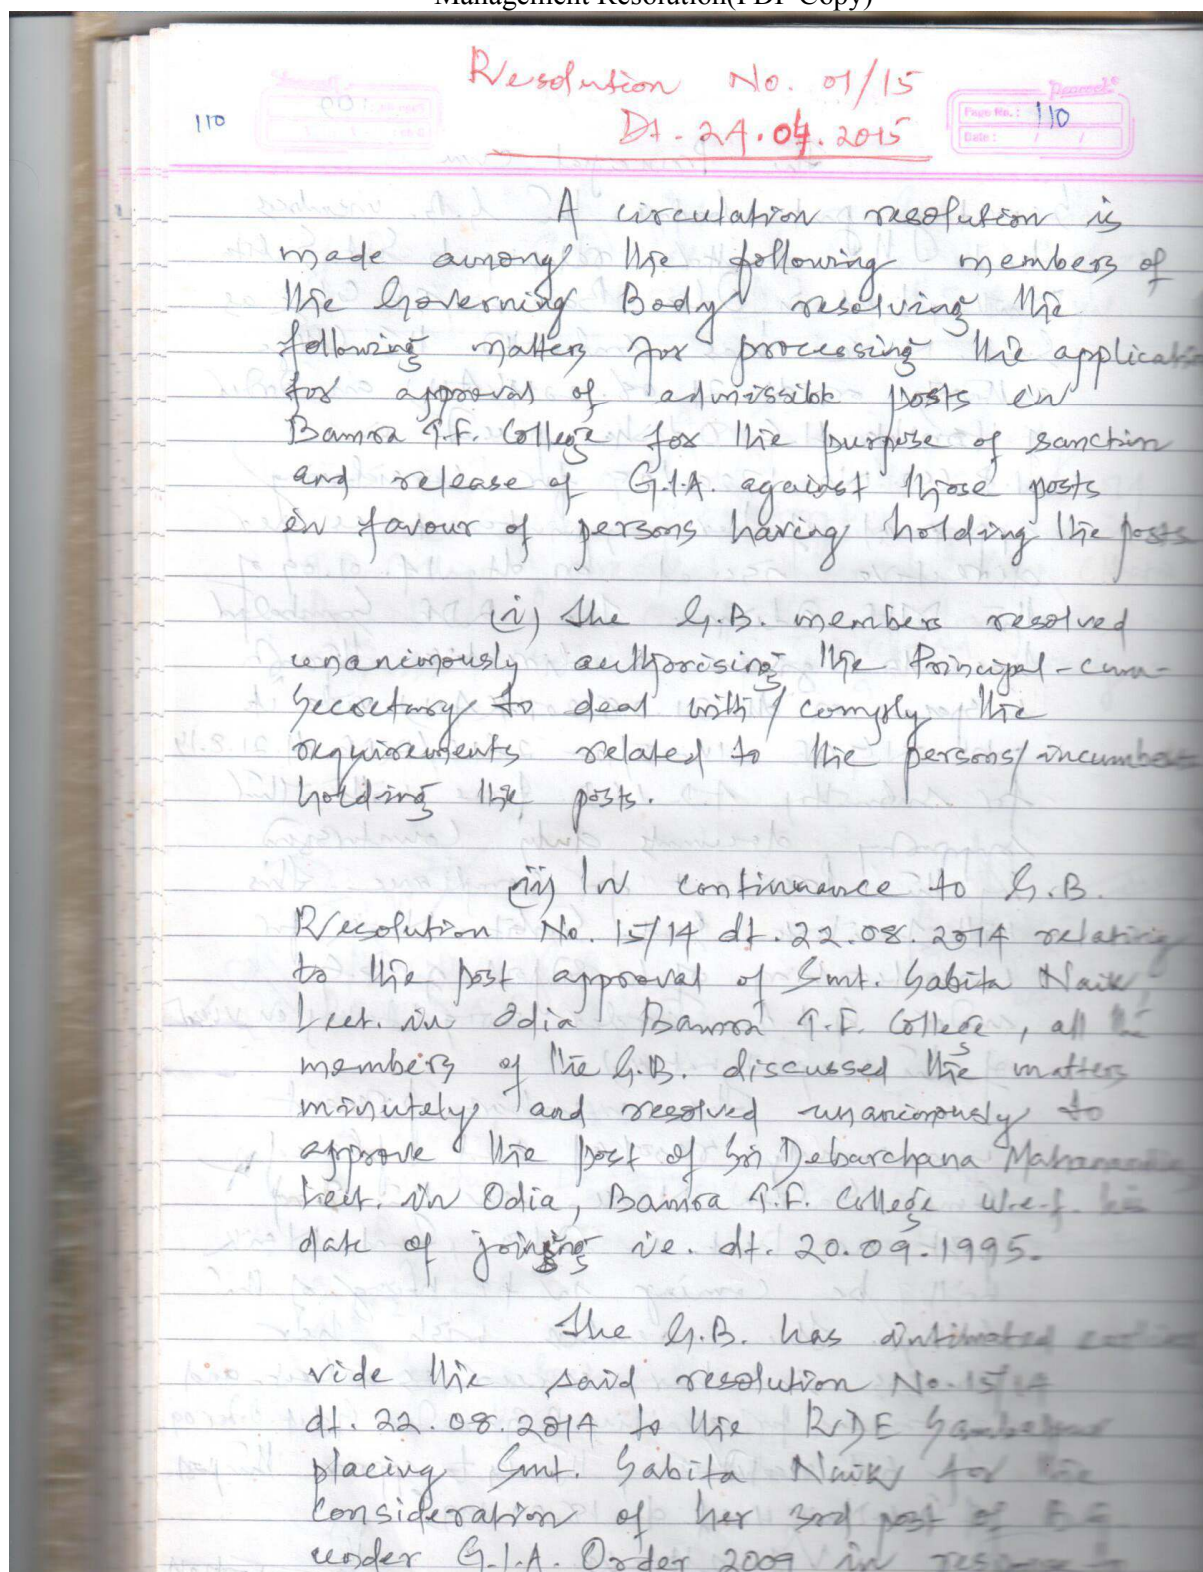 Management Resolution(PDF Copy)
Resolution No. 01/15
Dt. 24.04.2015
110
Page No.: 110
Date: / /
A circulation resolution is
made among the following members of
the Governing Body resolving the
following matters for processing the applicati
for approval of admissible posts in
Bamra T.F. College for the purpose of sanction
and release of G.I.A. against those posts
in favour of persons having holding the posts
(i) The G.B. members resolved
unanimously authorising the Principal-cum-
Secretary to deal with / comply the
requirements related to the persons/incumbents
holding the posts.
(ii) In continuance to G.B.
Resolution No. 15/14 dt. 22.08.2014 relating
to the post approval of Smt. Sabita Naik,
Lect. in Odia Bamra T.F. College, all the
members of the G.B. discussed the matters
minutely and resolved unanimously to
approve the post of Sri Debarchana
Lect. in Odia, Bamra T.F. College w.e.f. his
date of joining i.e. dt. 20.09.1995.
The G.B. has intimated
vide the said resolution No. 15/14
dt. 22.08.2014 to the RDE Sambalpur
placing Smt. Sabita Naik for the
consideration of her 3rd post of
under G.I.A. Order 2009 in